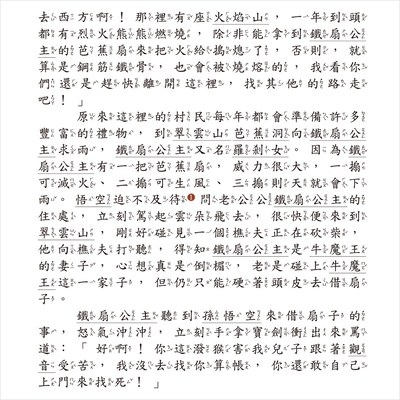 去西方啊！那裡有座火焰山，一年到頭
都有烈火熊熊燃燒，除非能拿到鐵扇公
主的芭蕉扇來把火給搧熄了，否則，就
算是鋼筋鐵骨，也會被燒熔的，我看你
們還是趕快離開這裡，找其他的路走
吧！」
原來這裡的村民每年都會準備許多
豐富的禮物，到翠雲山芭蕉洞向鐵扇公
主求雨，鐵扇公主又名羅剎女。因為鐵
扇公主有一把芭蕉扇，威力很大，一搧
可滅火、二搧可生風、三搧則天就會下
雨。悟空迫不及待❶問老公公鐵扇公主的
住處，立刻駕起雲朵飛去，很快便來到
翠雲山，剛好碰見一個樵夫正在砍柴，
他向樵夫打聽，得知鐵扇公主是牛魔王
的妻子，心想真是倒楣，老是碰上牛魔
王這一家子，但仍只能硬著頭皮去借扇
子。
鐵扇公主聽到孫悟空來借扇子的
事，怒氣沖沖，立刻手拿寶劍衝出來罵
道：「好啊！你這潑猴害我兒子跟著觀
音受苦，我沒去找你算帳，你還敢自己
上門來找死！」